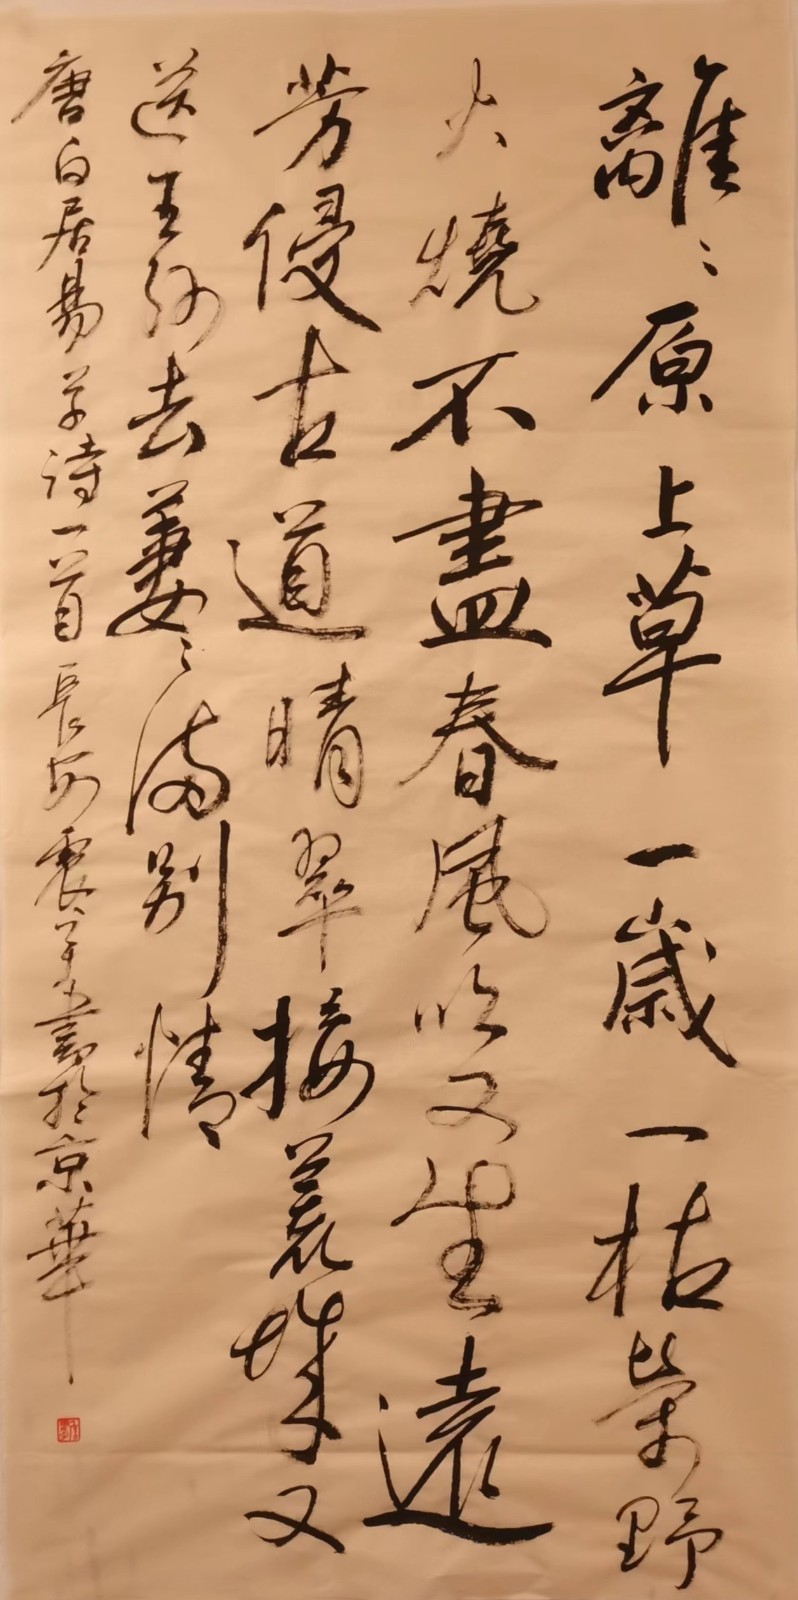 離〻原上草一歲一枯榮野
火燒不盡春風吹又生遠
芳侵古道晴翠接荒城又
送王孙去萋〻满别情
唐白居易草詩一首長安震平書於京華